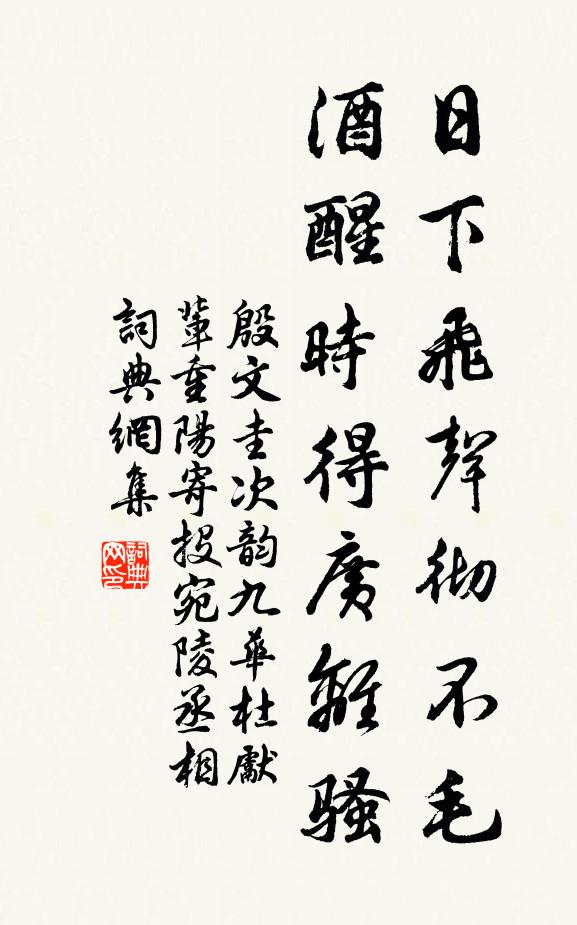 日下飛聲彻不毛
酒醒時得廣離騷
殷文圭次韵九華杜獻
輩重陽寄投宛陵丞相
詞典網集
詞典
网印